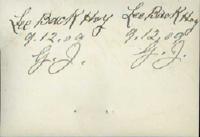 Lee Back Hoy
9.12.09
G.J.
Lee Back Hoy
9.12.09
G.J.